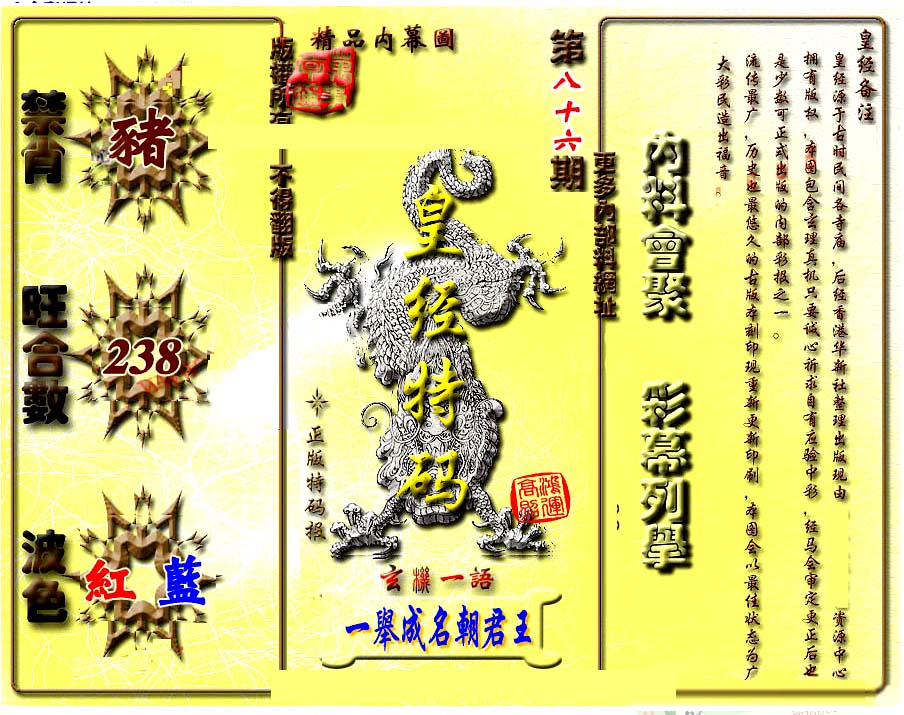 精品内幕圖
第八十六期
版權所有
不得翻版
禁肖
豬
旺合數
238
波色
紅 藍
皇经特码
正版特码报
鴻運高照
玄機一語
一舉成名朝君王
更多內部料網址
内料會聚
彩幕列舉
皇经备注
皇经源于古时民间各寺庙,后经香港华新社整理出版现由 资源中心
拥有版权,本图包含玄理真机只要诚心祈求自有应验中彩,经马会审定更正后也
是少数可正式出版的内部彩报之一。
流传最广,历史也最悠久的古版本刻印现重新更新印刷,本图会以最佳状态为广
大彩民造出福音。